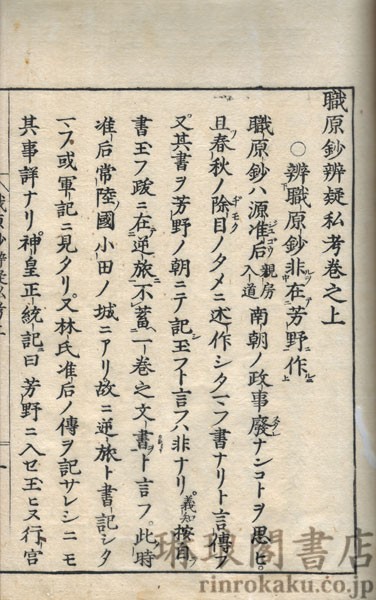 職原鈔辨疑私考巻之上
○辨職原鈔非在芳野作
職原鈔ハ源准后親房入道南朝ノ政事廢ナンコトヲ思ヒ
且春秋ノ除目ノタメニ述作シタマフ書ナリト言傳フ
又其書ヲ芳野ノ朝ニテ記玉フト言フハ非ナリ義知按自
書玉フ跋ニ在逆旅不蓄一巻之文書ト言フ此時
准后常陸國小田ノ城ニアリ故ニ逆旅ト書記シタ
マフ或軍記ニ見タリ又林氏准后ノ傳ヲ記サレシニモ
其事詳ナリ神皇正統記曰芳野ニ入セ玉ヒヌ行宮
琳琅閣書店
rinrokaku.co.jp